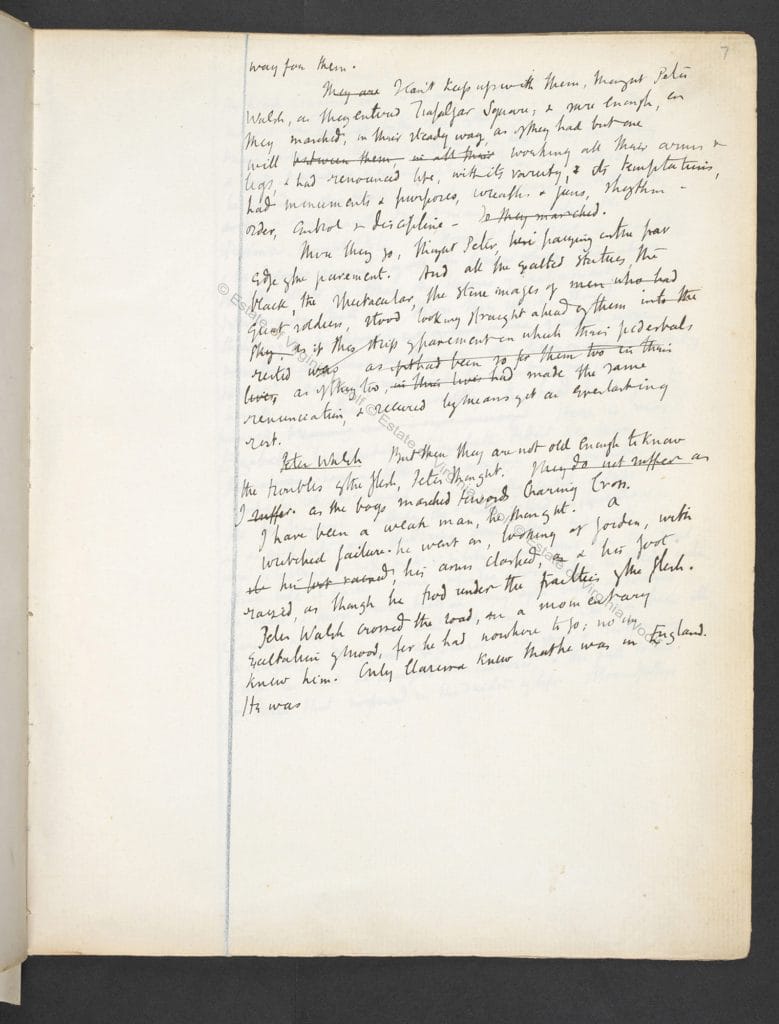 7
way for them.
They are I can't keep up with them, thought Peter
Walsh, as they entered Trafalgar Square; & sure enough, on
they marched, in their steady way, as if they had but one
will between them, in all their working all their arms &
legs, & had renounced life, with its variety, & its temptations,
had monuments & purposes, wreaths & guns, rhythm –
order, control & discipline – So they marched.
There they go, thought Peter, pausing on the
edge of the pavement. And all the exalted statues, the
black, the spectacular, the stone images of men who had
great soldiers, stood looking straight ahead of them into the
sky. as if the strip of pavement on which their pedestals
rested was as if it had been so for them too in their
lives, as if they too, in their lives had made the same
renunciation, & secured by means of it an everlasting
rest.
Peter Walsh But then they are not old enough to know
the troubles of the flesh, Peter thought. They do not suffer as
I suffer. as the boys marched towards Charing Cross.
I have been a weak man, he thought. A
wretched failure. he went on, looking at Gordon, with
his foot raised, his arms clasped, & his foot
raised, as though he trod under the frailties of the flesh.
Peter Walsh crossed the road, in a momentary
exaltation of mood, for he had nowhere to go; no one
knew him. Only Clarissa knew that he was in England.
He was
© Estate of Virginia Woolf © Estate of Virginia Woolf © Estate of Virginia Woolf